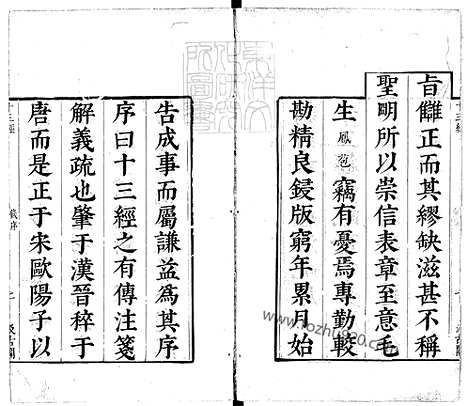 旨讎正而其繆缺滋甚不稱
聖明所以崇信表章至意毛
生鳳苞竊有憂焉專勤較
勘精良鋟版窮年累月始
東洋文
化研究
所圖書
告成事而屬謙益為其序
序曰十三經之有傳注箋
解義疏也肇于漢晉稡于
唐而是正于宋歐陽子以
十三經
汲古閣
www.fozhu920.com